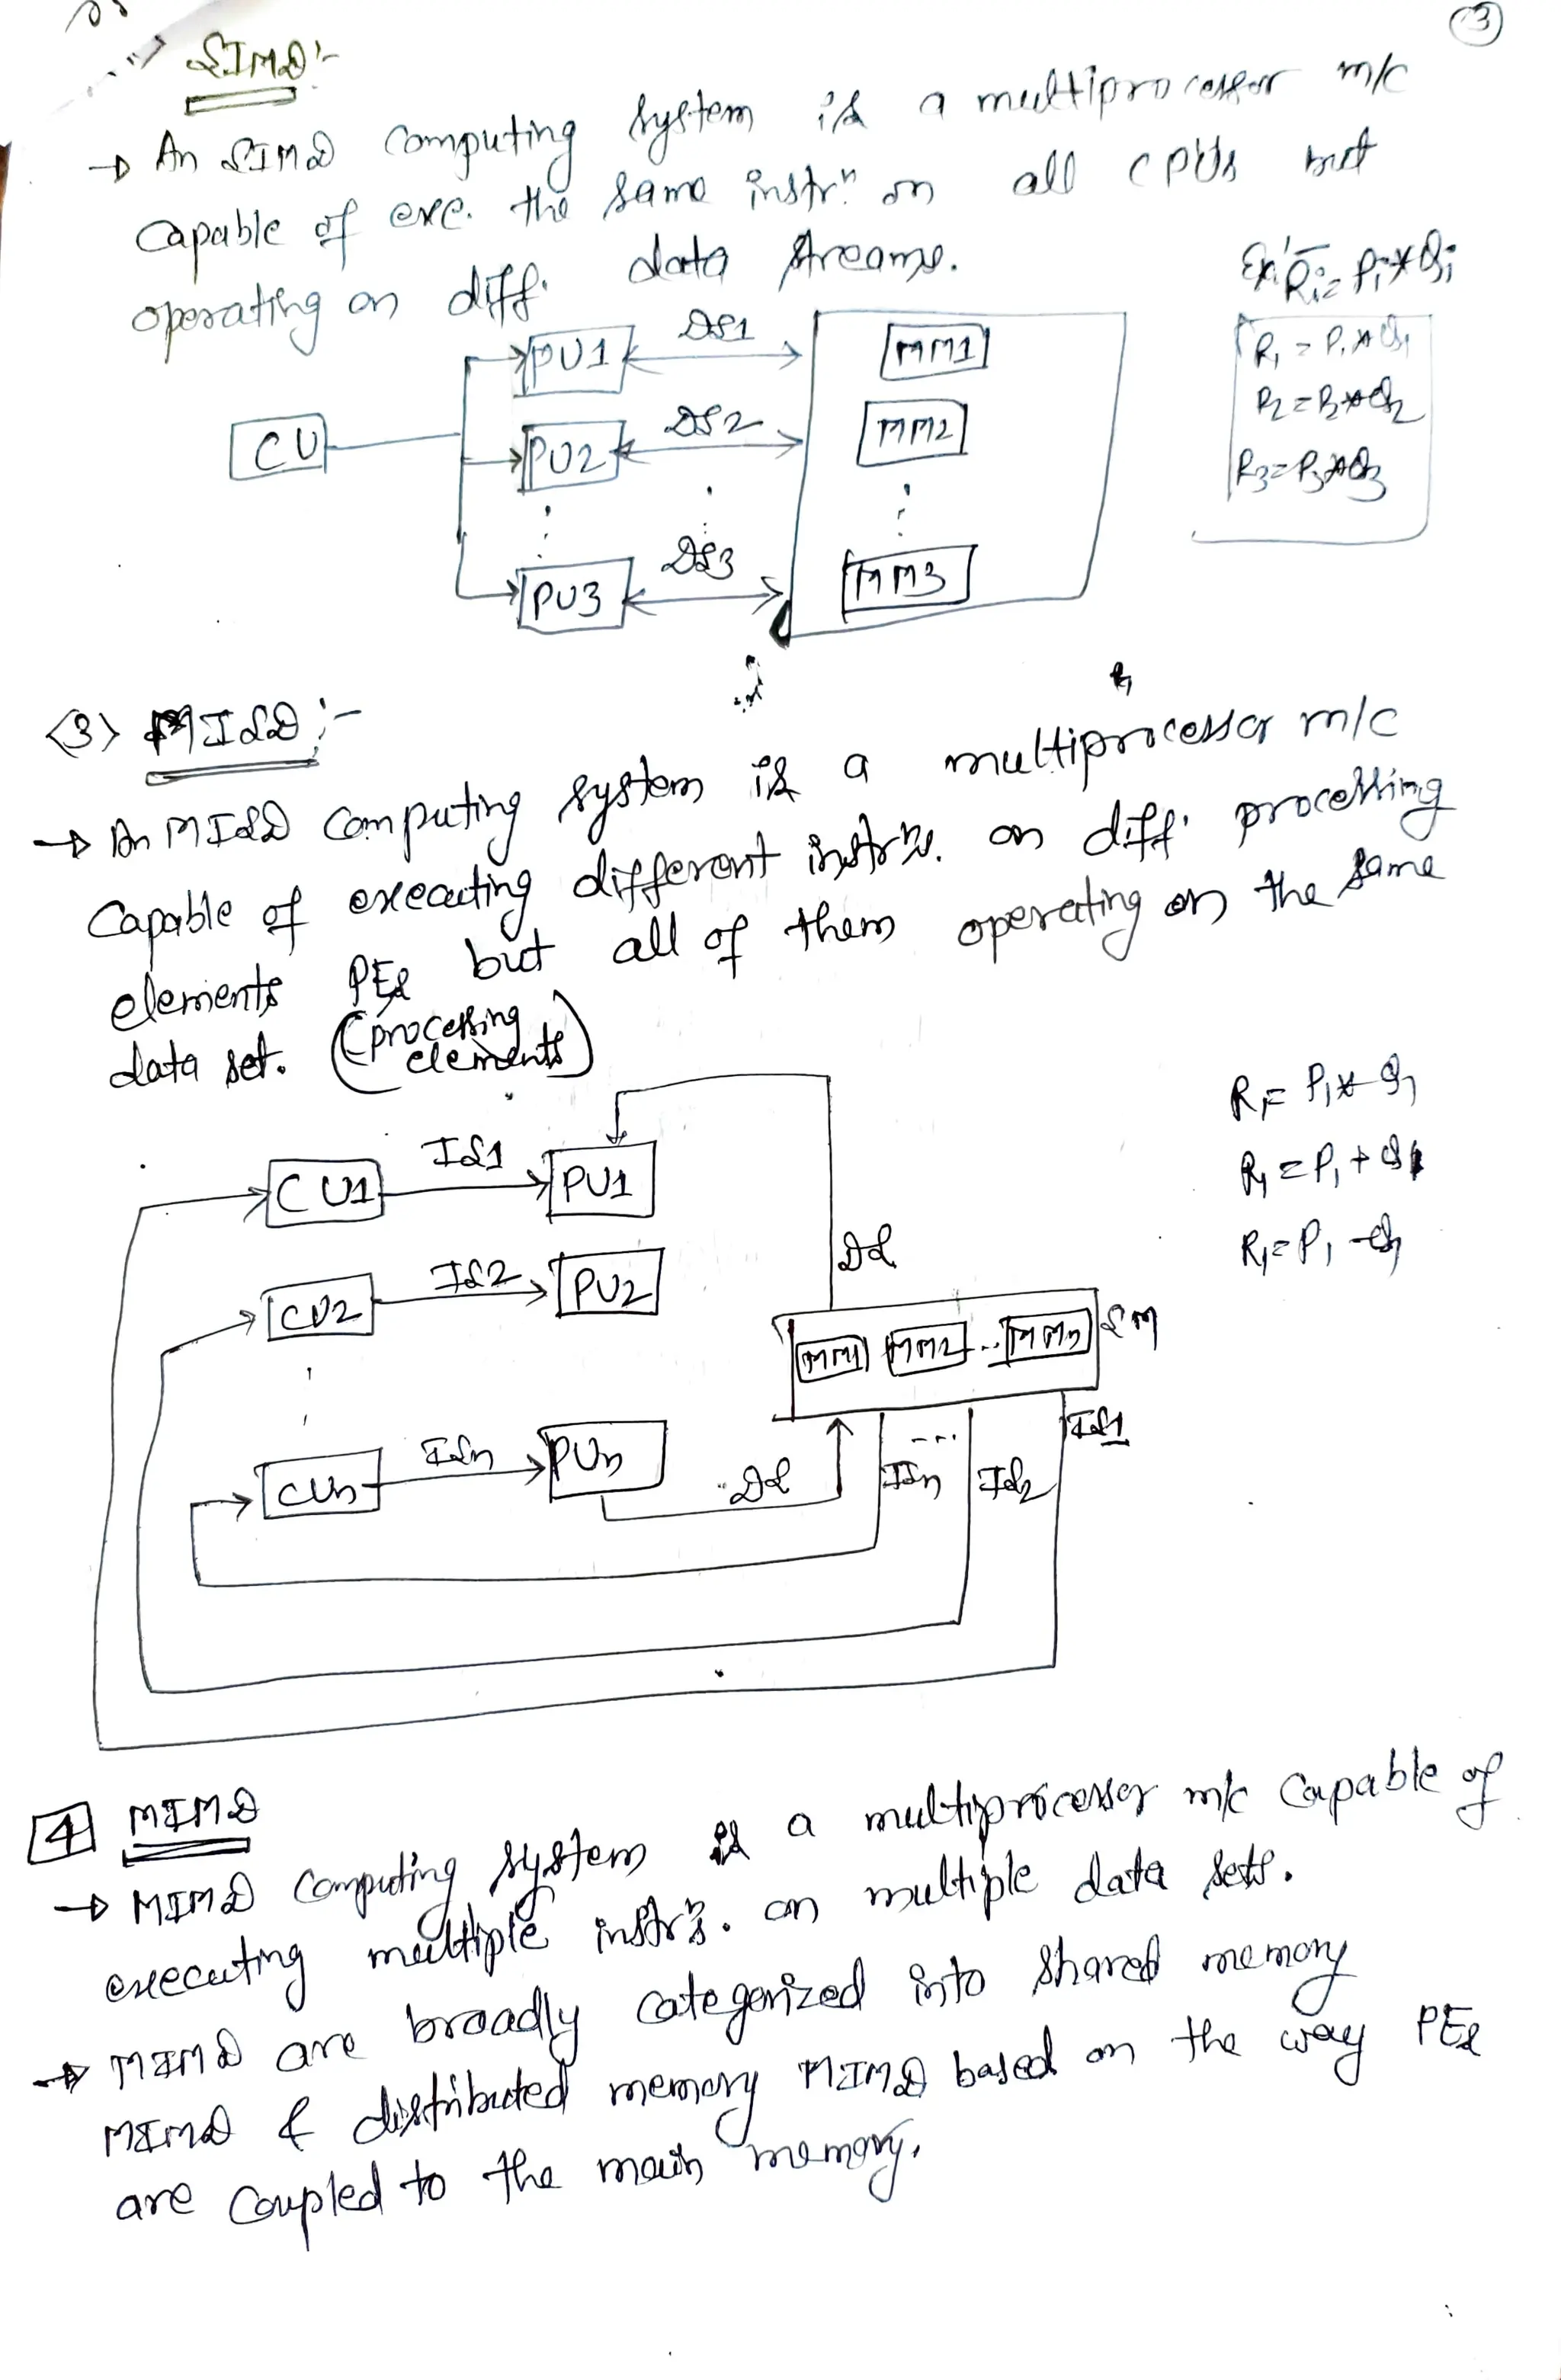 3
SIMD:-
→ An SIMD Computing system is a multiprocessor m/c
Capable of exe. the same instrⁿ. on all CPUs but
operating on diff. data streams.
Ex:- Ri = Pi * Qi
R1 = P1 * Q1
R2 = P2 * Q2
R3 = P3 * Q3
CU
PU1 DS1 MM1
PU2 DS2 MM2
PU3 DS3 MM3
<3> MISD:-
→ An MISD Computing system is a multiprocessor m/c
Capable of executing different instrⁿs. on diff. processing
elements PEs but all of them operating on the same
data set. (processing
elements)
R1 = P1 * Q1
R1 = P1 + Q1
R1 = P1 - Q1
CU1 IS1 PU1
DS
CU2 IS2 PU2
MM1 MM2 ... MMn SM
CUn ISn PUn
DS ISn ... IS2 IS1
4 MIMD
→ MIMD Computing system is a multiprocessor m/c Capable of
executing multiple instrⁿs. on multiple data sets.
→ MIMD are broadly categorized into shared memory
MIMD & distributed memory MIMD based on the way PEs
are coupled to the main memory.